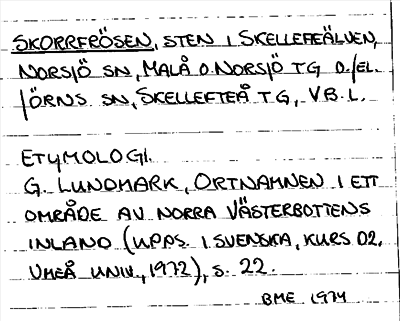 SKORRFRÖSEN, STEN I SKELLEFEÄLVEN,
NORSJÖ SN, MALÅ O. NORSJÖ TG O./EL.
JÖRNS SN, SKELLEFTEÅ TG, VB. L.
ETYMOLOGI.
G. LUNDMARK, ORTNAMNEN I ETT
OMRÅDE AV NORRA VÄSTERBOTTENS
INLAND (UPPS. I SVENSKA, KURS 02,
UMEÅ UNIV., 1972), S. 22.
BME 1974